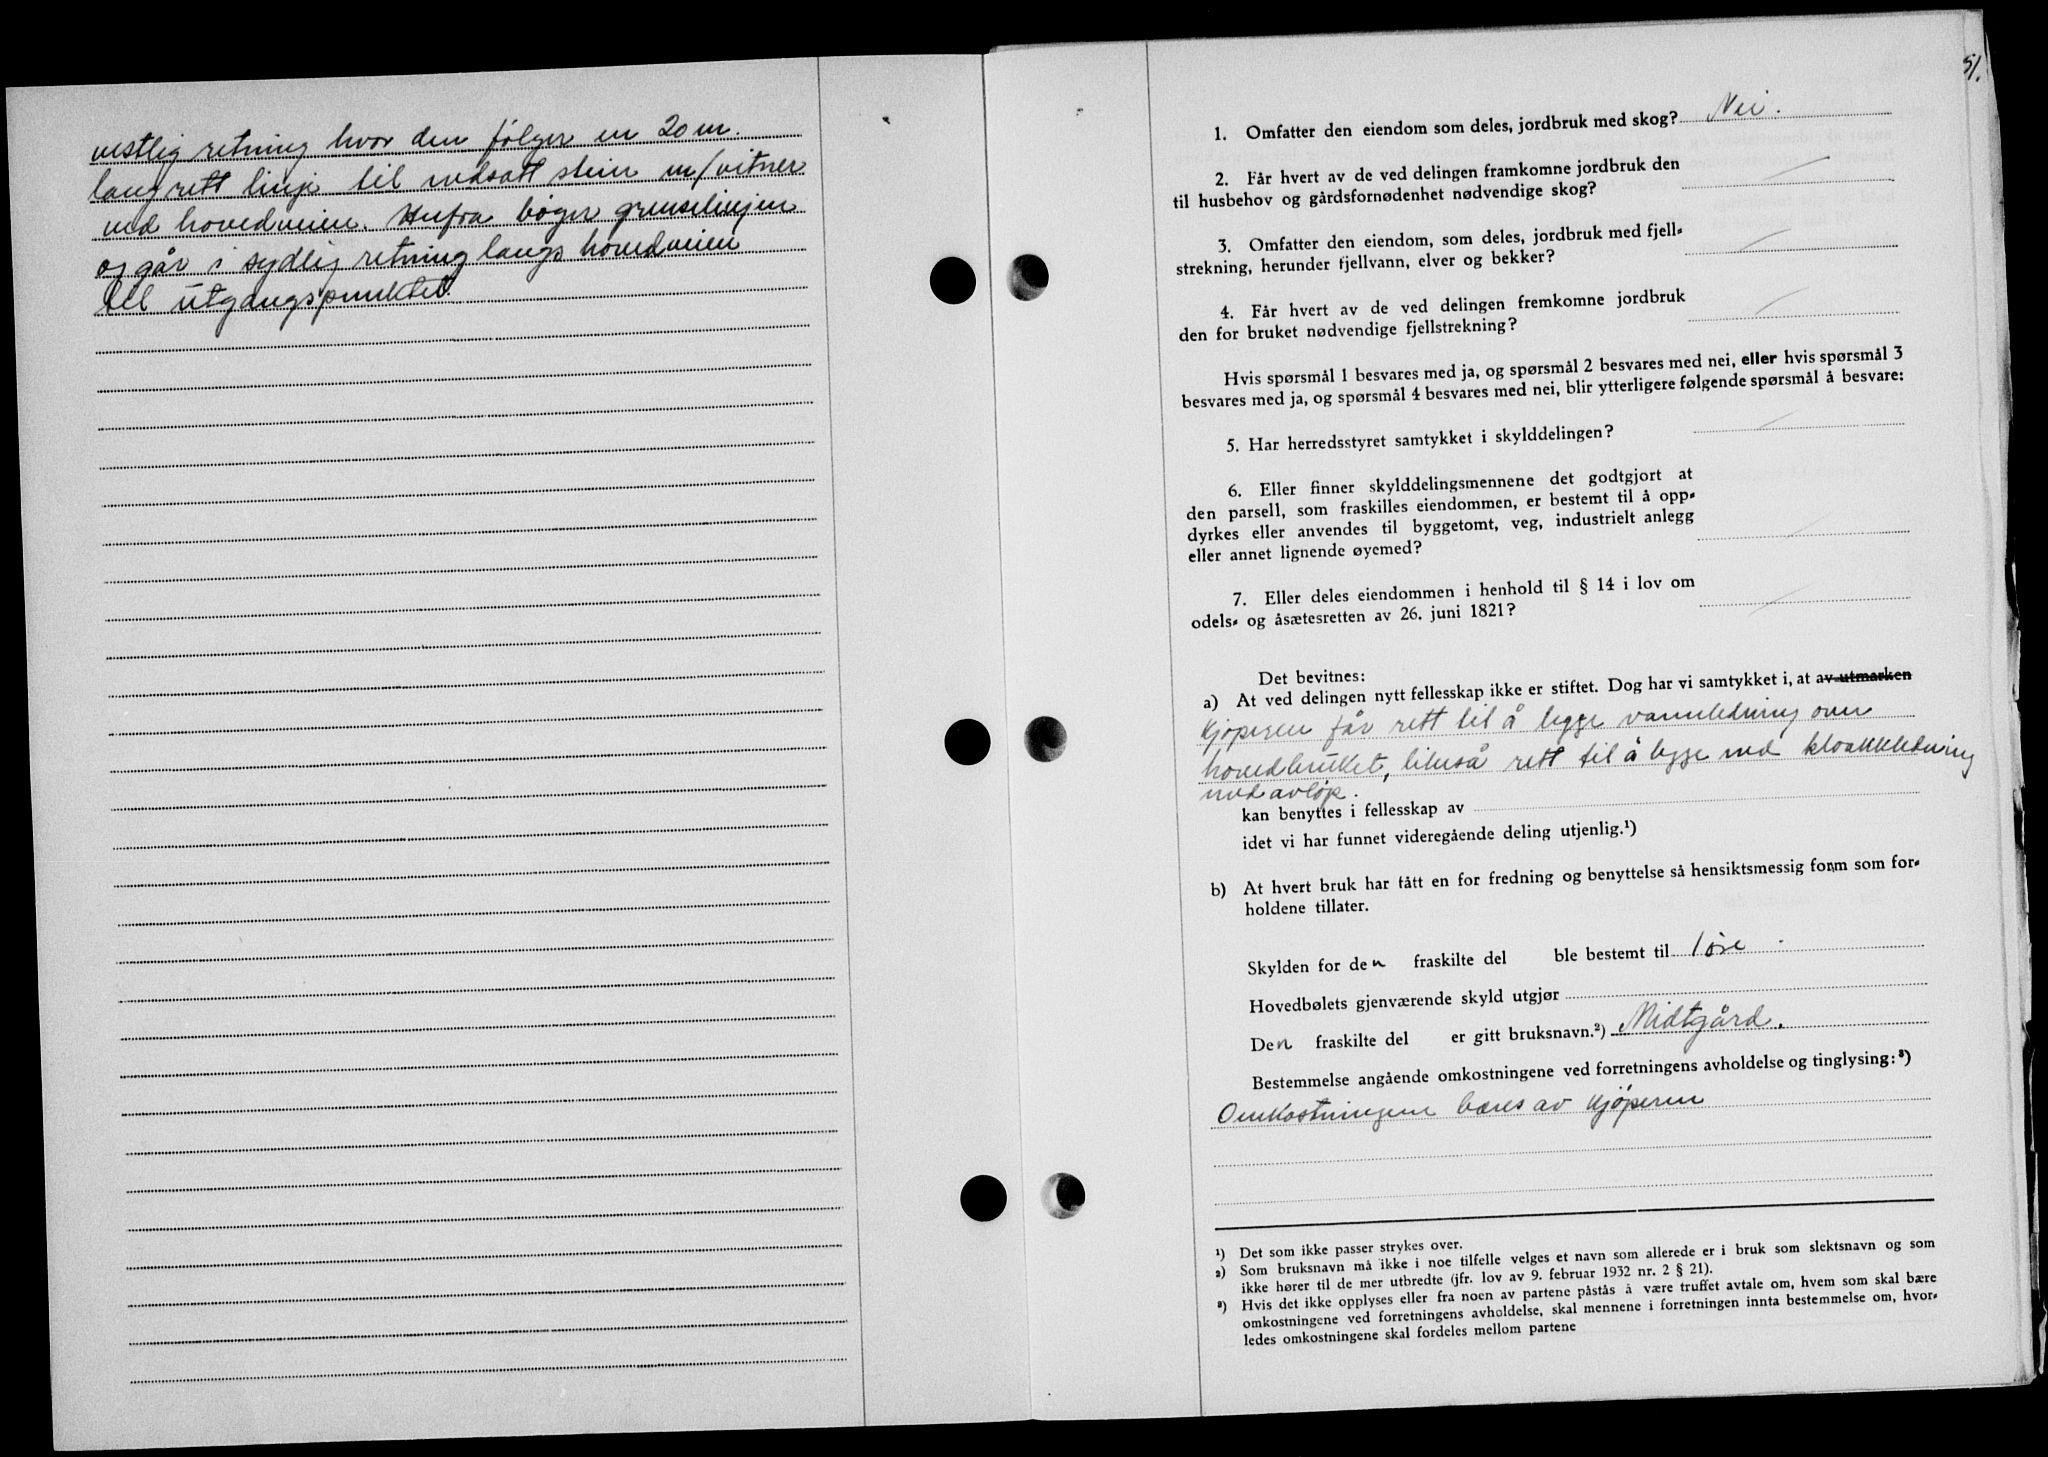 vestlig retning hvor den følger en 20 m.
lang rett linje til nedsatt stein m/vitner
ved hovedveien. Herfra bøyer grenselinjen
og går i sydlig retning langs hovedveien
til utgangspunktet.
51.
1. Omfatter den eiendom som deles, jordbruk med skog? Nei.
2. Får hvert av de ved delingen framkomne jordbruk den
til husbehov og gårdsfornødenhet nødvendige skog? /
3. Omfatter den eiendom, som deles, jordbruk med fjell-
strekning, herunder fjellvann, elver og bekker? /
4. Får hvert av de ved delingen fremkomne jordbruk
den for bruket nødvendige fjellstrekning? /
Hvis spørsmål 1 besvares med ja, og spørsmål 2 besvares med nei, eller hvis spørsmål 3
besvares med ja, og spørsmål 4 besvares med nei, blir ytterligere følgende spørsmål å besvare:
5. Har herredsstyret samtykket i skylddelingen? /
6. Eller finner skylddelingsmennene det godtgjort at
den parsell, som fraskilles eiendommen, er bestemt til å opp-
dyrkes eller anvendes til byggetomt, veg, industrielt anlegg
eller annet lignende øyemed? /
7. Eller deles eiendommen i henhold til § 14 i lov om
odels- og åsætesretten av 26. juni 1821? /
Det bevitnes:
a) At ved delingen nytt fellesskap ikke er stiftet. Dog har vi samtykket i, at av utmarken
Kjøperen får rett til å legge vannledning over
hovedbruket, likeså rett til å legge ned kloakkledning
med avløp.
kan benyttes i fellesskap av
idet vi har funnet videregående deling utjenlig.¹)
b) At hvert bruk har fått en for fredning og benyttelse så hensiktsmessig form som for-
holdene tillater.
Skylden for den fraskilte del ble bestemt til 1 øre.
Hovedbølets gjenværende skyld utgjør
Den fraskilte del er gitt bruksnavn.²) Midtgård.
Bestemmelse angående omkostningene ved forretningens avholdelse og tinglysing:³)
Omkostningene bæres av kjøperen
¹) Det som ikke passer strykes over.
²) Som bruksnavn må ikke i noe tilfelle velges et navn som allerede er i bruk som slektsnavn og som
ikke hører til de mer utbredte (jfr. lov av 9. februar 1932 nr. 2 § 21).
³) Hvis det ikke opplyses eller fra noen av partene påstås å være truffet avtale om, hvem som skal bære
omkostningene ved forretningens avholdelse, skal mennene i forretningen innta bestemmelse om, hvor-
ledes omkostningene skal fordeles mellom partene